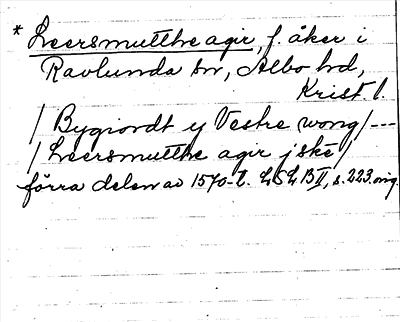 * Leersmutthe agir, f. åker i
Ravlunda sn, Albo hd,
Krist l.
/ Bygiordt y Vestre wong / ---
/ Leersmutthe agir j skē /
förra delen av 1570-t. LSLB II, s. 223. orig.